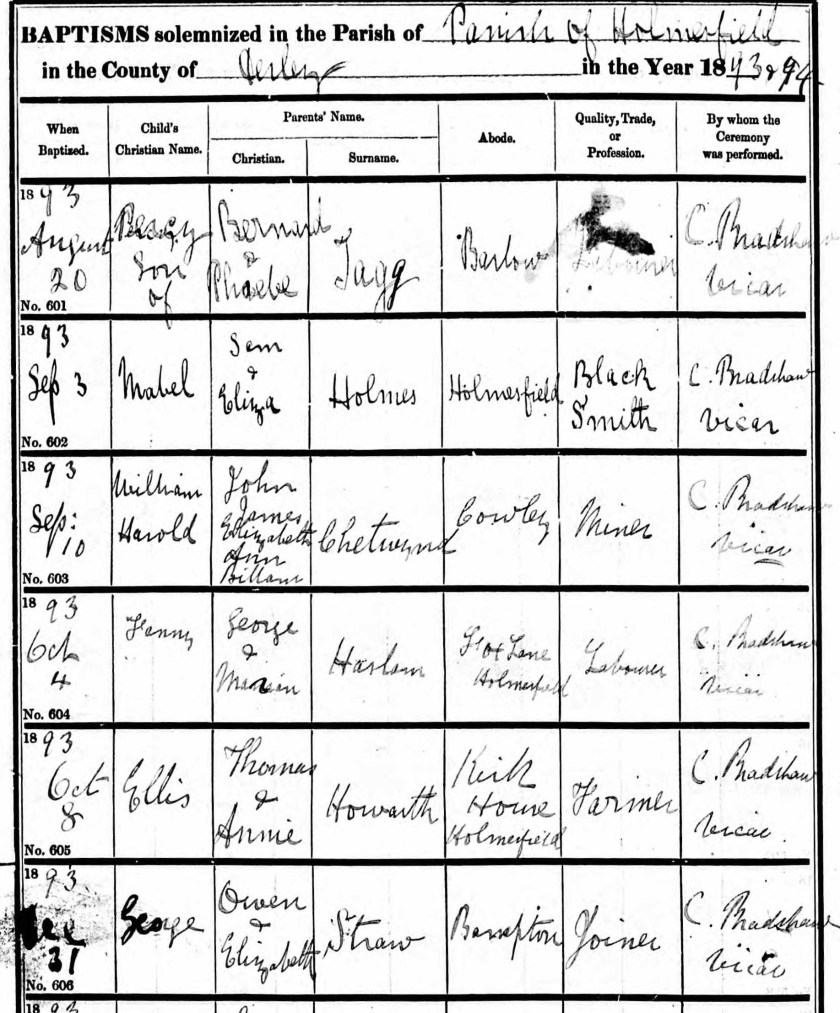 BAPTISMS solemnized in the Parish of Parish of Holmesfield
in the County of Derby in the Year 1893 & 94
When Baptized.
Child's Christian Name.
Parents' Name.
Christian.
Surname.
Abode.
Quality, Trade, or Profession.
By whom the Ceremony was performed.
1893
August
20
No. 601
Percy
Son
of
Bernard
&
Phoebe
Tagg
Barlow
Labourer
C. Bradshaw
Vicar
1893
Sep 3
No. 602
Mabel
Sam
&
Eliza
Holmes
Holmesfield
Black
Smith
C. Bradshaw
Vicar
1893
Sep:
10
No. 603
William
Harold
John
James
Elizabeth
Ann
Chetwynd
Cowley
Miner
C. Bradshaw
Vicar
1893
Oct
4
No. 604
Fanny
George
&
Harslam
Fox Lane
Holmesfield
Labourer
C. Bradshaw
Vicar
1893
Oct
8
No. 605
Ellis
Thomas
&
Annie
Howarth
Kirk
House
Holmesfield
Farmer
C. Bradshaw
Vicar
1893
Dec
31
No. 606
George
Owen
&
Elizabeth
Straw
Brampton
Joiner
C. Bradshaw
Vicar
1893